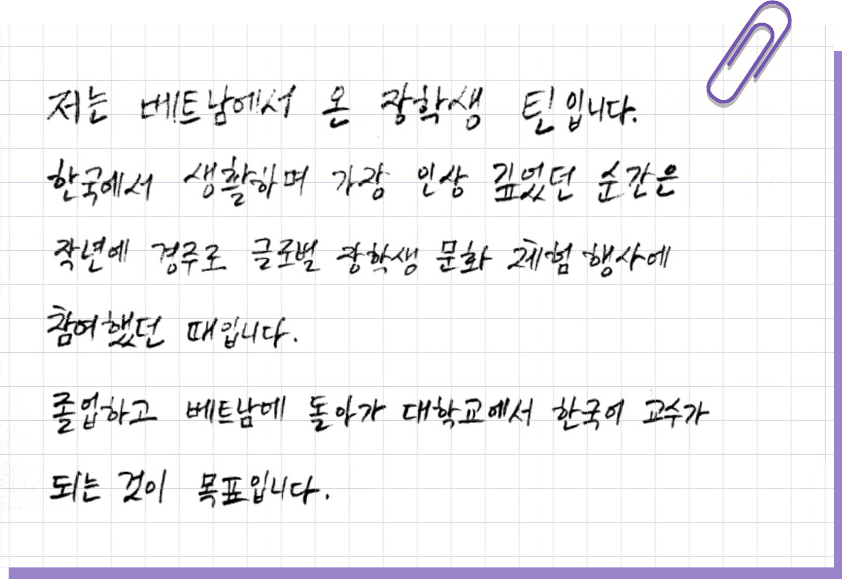 저는 베트남에서 온 장학생 틴입니다.
한국에서 생활하며 가장 인상 깊었던 순간은
작년에 경주로 글로벌 장학생 문화 체험 행사에
참여했던 때입니다.
졸업하고 베트남에 돌아가 대학교에서 한국어 교수가
되는 것이 목표입니다.